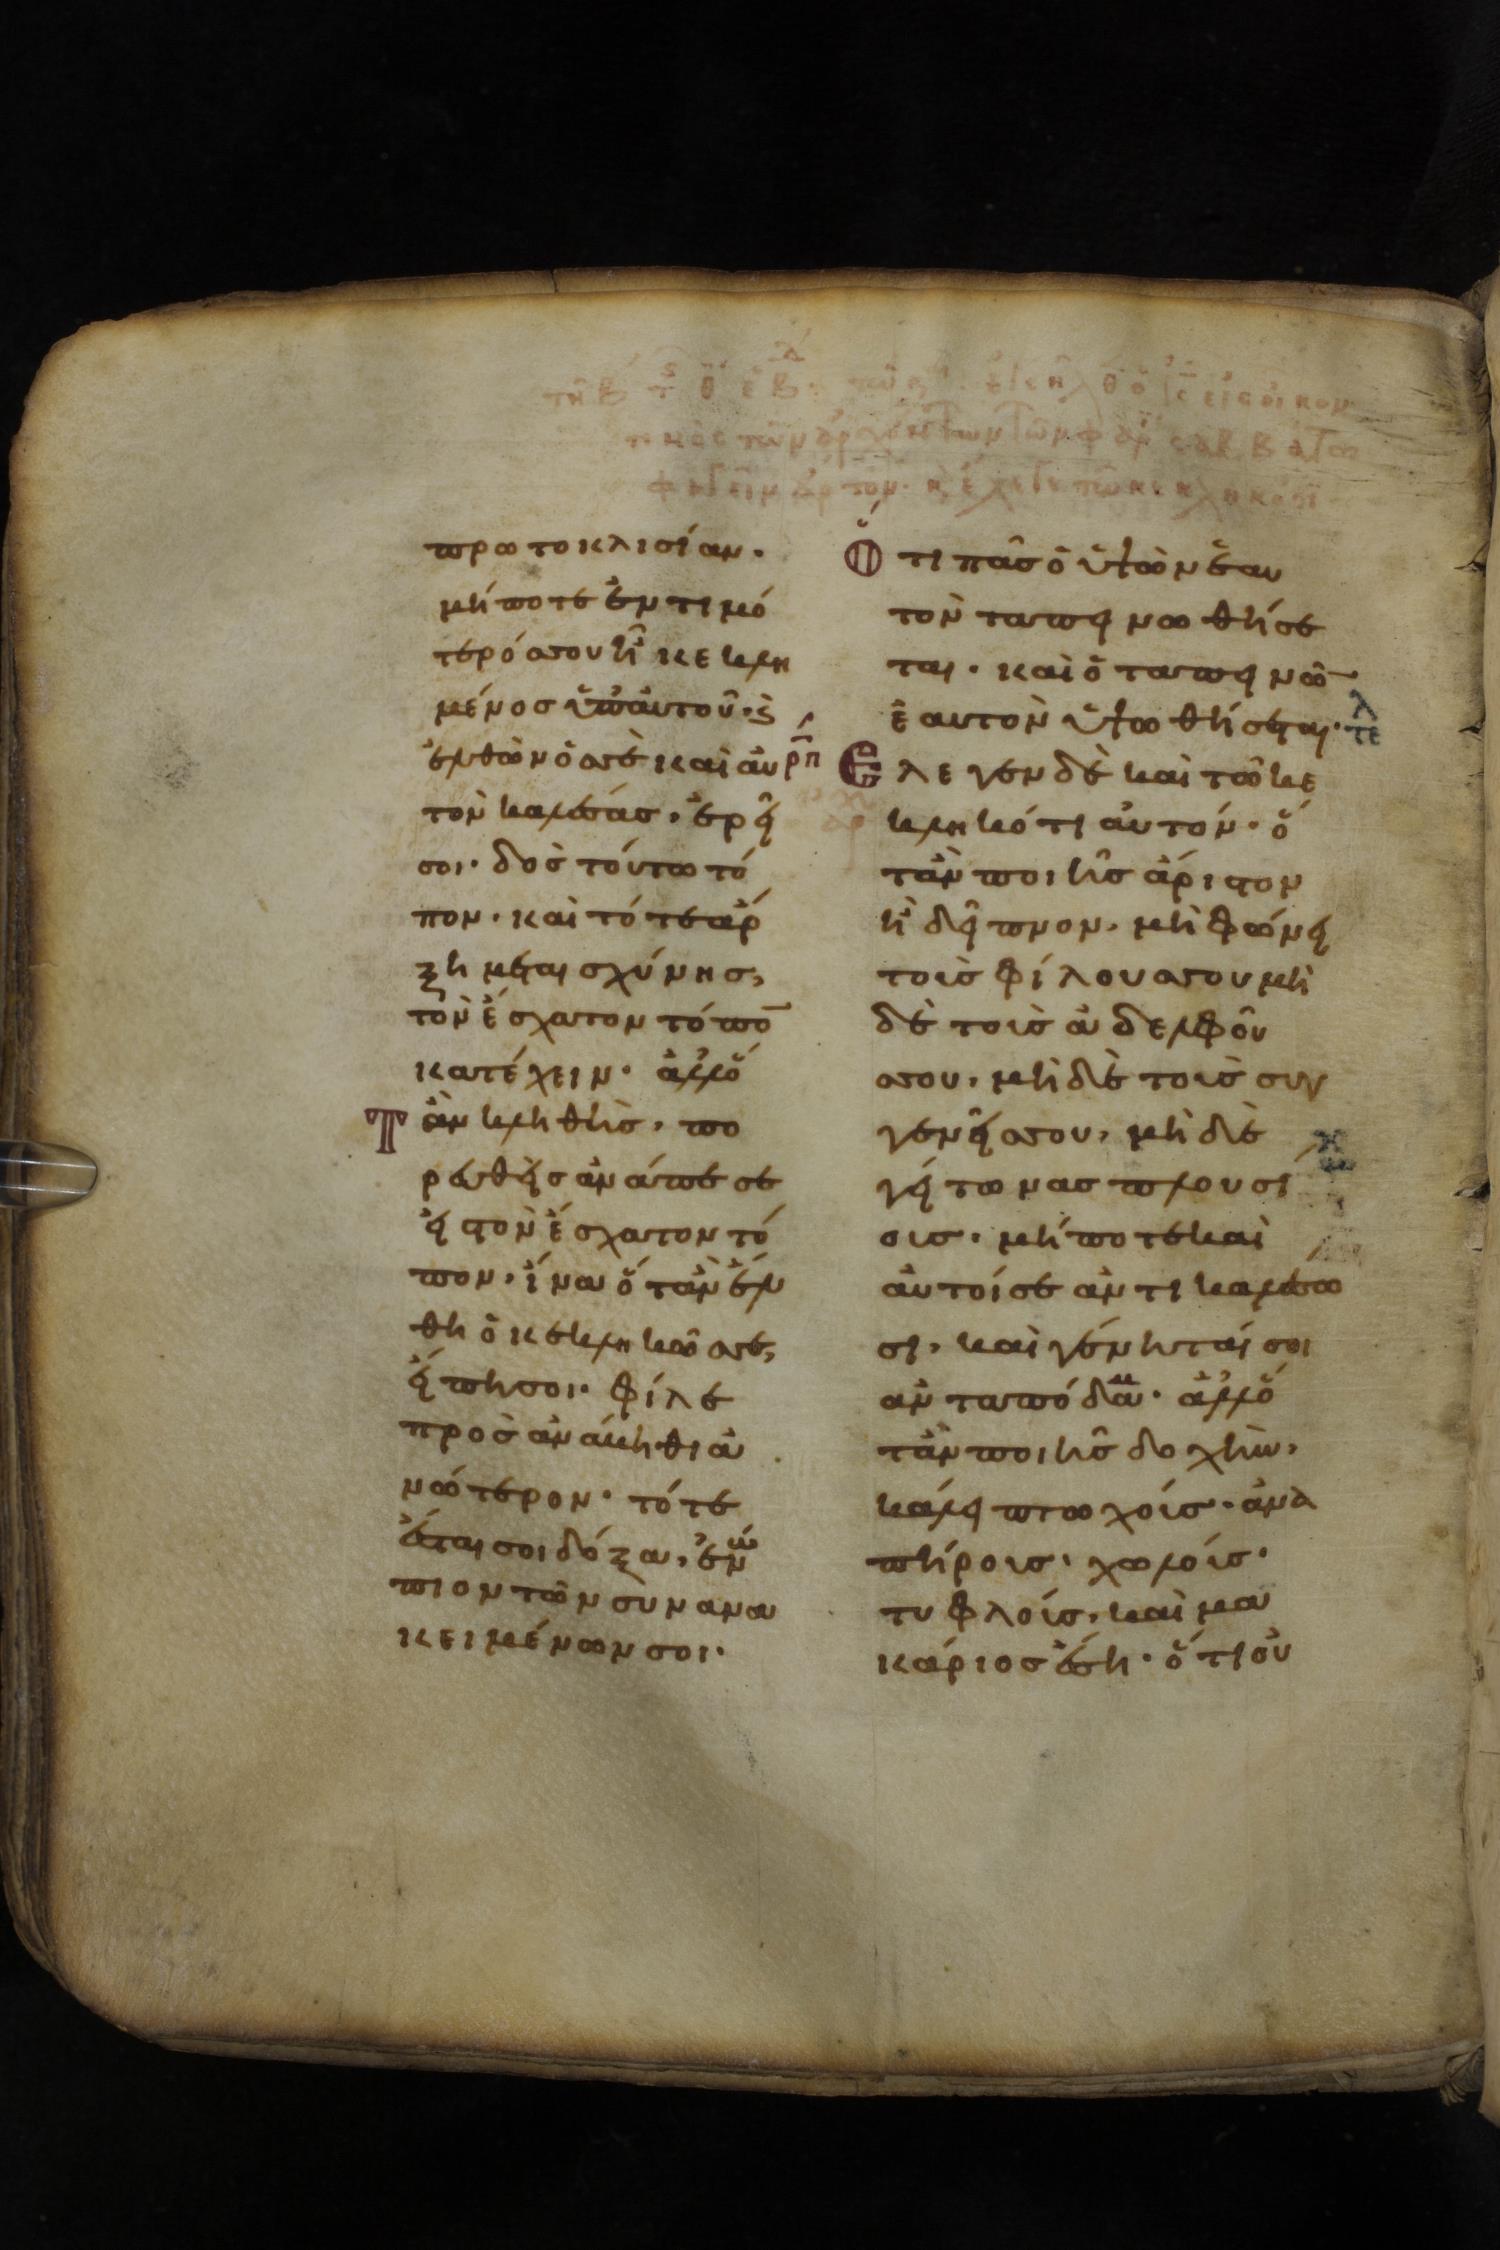 τῆ Β
εἰς οἶκον
τινὸς τῶν ἀρχόντων τῶν φαρ σαββάτω
φαγεῖν ἄρτον. κ ἔλεγε τῶ κεκληκότι
πρωτοκλισίαν.
μήποτε ἐντιμό
τερόσ σου ἦ κεκλη
μένος ὑπ αὐτοῦ. κ
ἐλθὼν ὁ σὲ καὶ αυ ρπ
τὸν καλέσας, ἐρεῖ
σοι. δοσ τούτω τό
πον. καὶ τότε ἄρ
ξη μεταισχύνησ,
τὸν ἔσχατον τόπο
κατέχειν. ἀλλό
Τ ἂν κληθῆσ, πο
ρευθεὶσ ἀνάπεσε
εἰς τὸν ἔσχατον τό
πον, ἵνα ὅταν ἔλ
θη ὁ κεκληκώσ σε,
εἴπη σοι. φίλε
προσανάβηθι ἀ
νώτερον. τότε
ἔσται σοι δόξα, ἐνώ
πιον τῶν συνανα
κειμένων σοι.
Ὅ τι πᾶσ ὁ ὑψῶν ἑαυ
τὸν ταπεινωθήσε
ται. καὶ ὁ ταπεινῶ
ἑαυτὸν ὑψωθήσεται. τε
λ
Ε λεγεν δὲ καὶ τῶ κε
κληκότι αὐτόν. ὅ
τἂν ποιῆσ ἄριστον
ἢ δεῖπνον, μὴ φώνει
τοὺσ φίλουσ σου μη
δὲ τοὺσ ἀδελφού
σ σου, μὴ δὲ τοὺσ συγ
γενεῖσ σου, μὴ δὲ
γείτονασ πλουσί
ουσ. μήποτε καὶ
αὐτοί σε ἀντικαλέσω
σι, καὶ γένηταί σοι
ἀνταπόδομα. ἀλλό
τἂν ποιῆσ δοχὴν,
κάλει πτωχούσ. ἀνα
πήρουσ, χωλούσ.
τυφλούσ, καὶ μα
κάριοσ ἔση. ὅτι οὐ